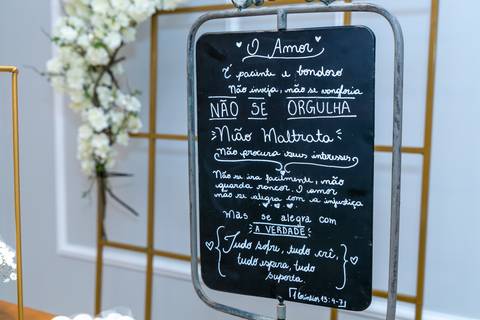 O Amor
É paciente e bondoso
Não inveja, não se vangloria
NÃO SE ORGULHA
Não Maltrata
Não procura seus interesses
Não se ira facilmente, não
guarda rancor. O amor
não se alegra com a injustiça
Mas se alegra com
A VERDADE
Tudo sofre, tudo crê,
tudo espera, tudo
suporta.
1 Coríntios 13:4-7